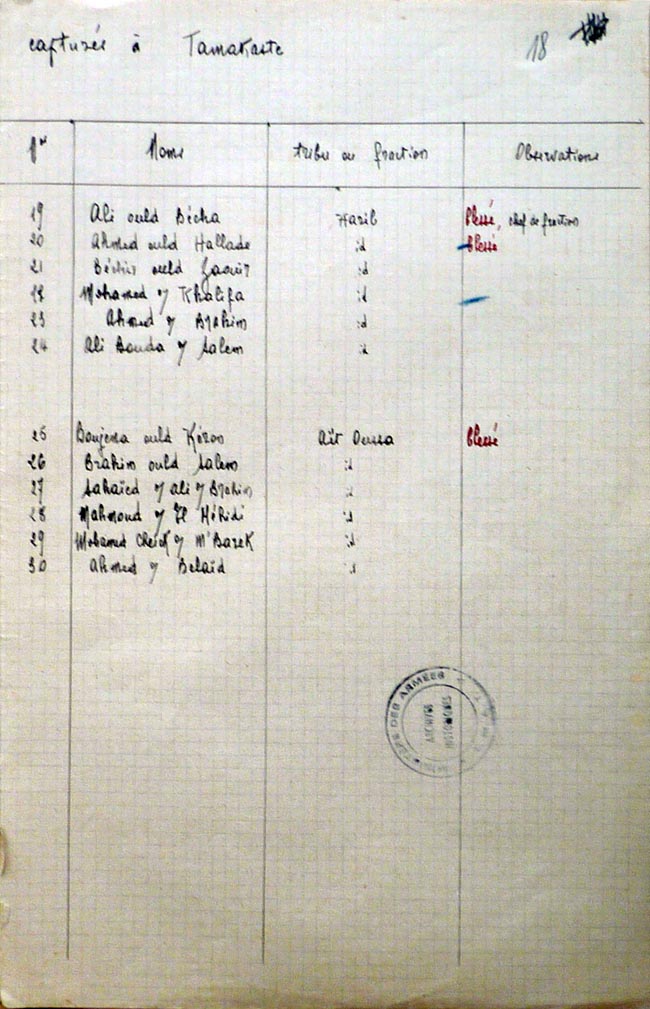 capturés à Tamakaste 18
Nos Noms tribu ou fraction Observations
19 Ali ould Bécha Harib blessé, chef de fraction
20 Ahmed ould Hallade id blessé
21 Béchir ould id
Mohamed o/ Khalifa id
23 Ahmed o/ Brahim id
24 Ali Bouda o/ Salem id
25 Boujema ould Kéron Aït Oussa blessé
26 Brahim ould Salem id
27 Sahaïed o/ Ali o/ Brahim id
28 Mahmoud o/ El id
29 Mohamed Cheick o/ M'Barek id
30 Ahmed o/ Belaïd id
DES ARMÉES
ARCHIVES
HISTORIQUES